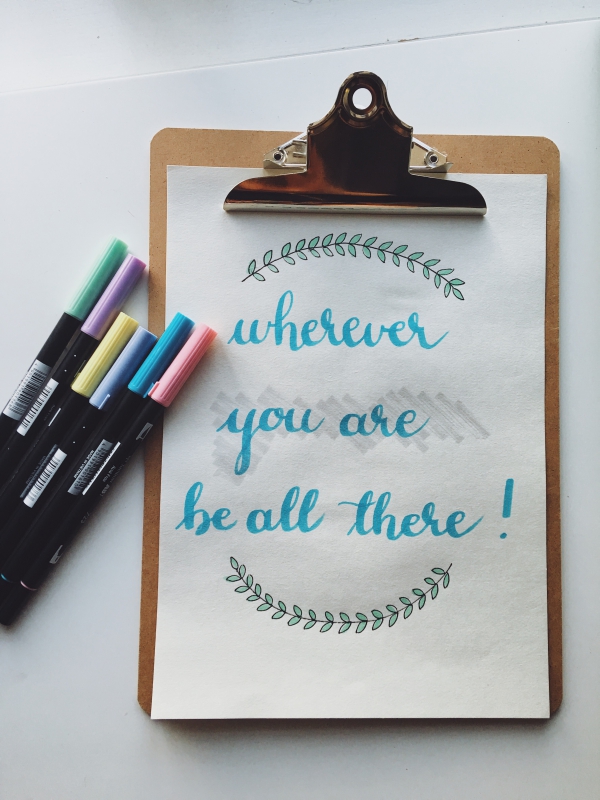 wherever
you are
be all there !